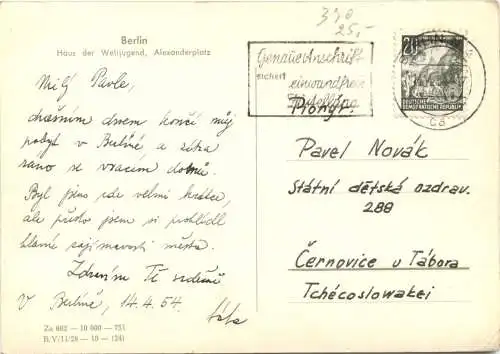 330
25,-
Berlin
Haus der Weltjugend, Alexanderplatz
Genaue Anschrift
sichert
einwandfreie
Zustellung
20
DEUTSCHE
DEMOKRATISCHE REPUBLIK
ca
Milý Pavle,
dnešním dnem končí můj
pobyt v Berlíně, a zítra
ráno se vracím domů.
Byl jsem zde velmi krátce,
ale přesto jsem si prohlédl
hlavní zajímavosti města.
Zdravím Tě srdečně
V Berlíně, 14.4.54. táta
Pavel Novák
Státní dětská ozdrav.
288
Černovice u Tábora
Tchécoslowakei
Za 602 — 10 000 — 751
B/V/11/28 — 10 — (24)